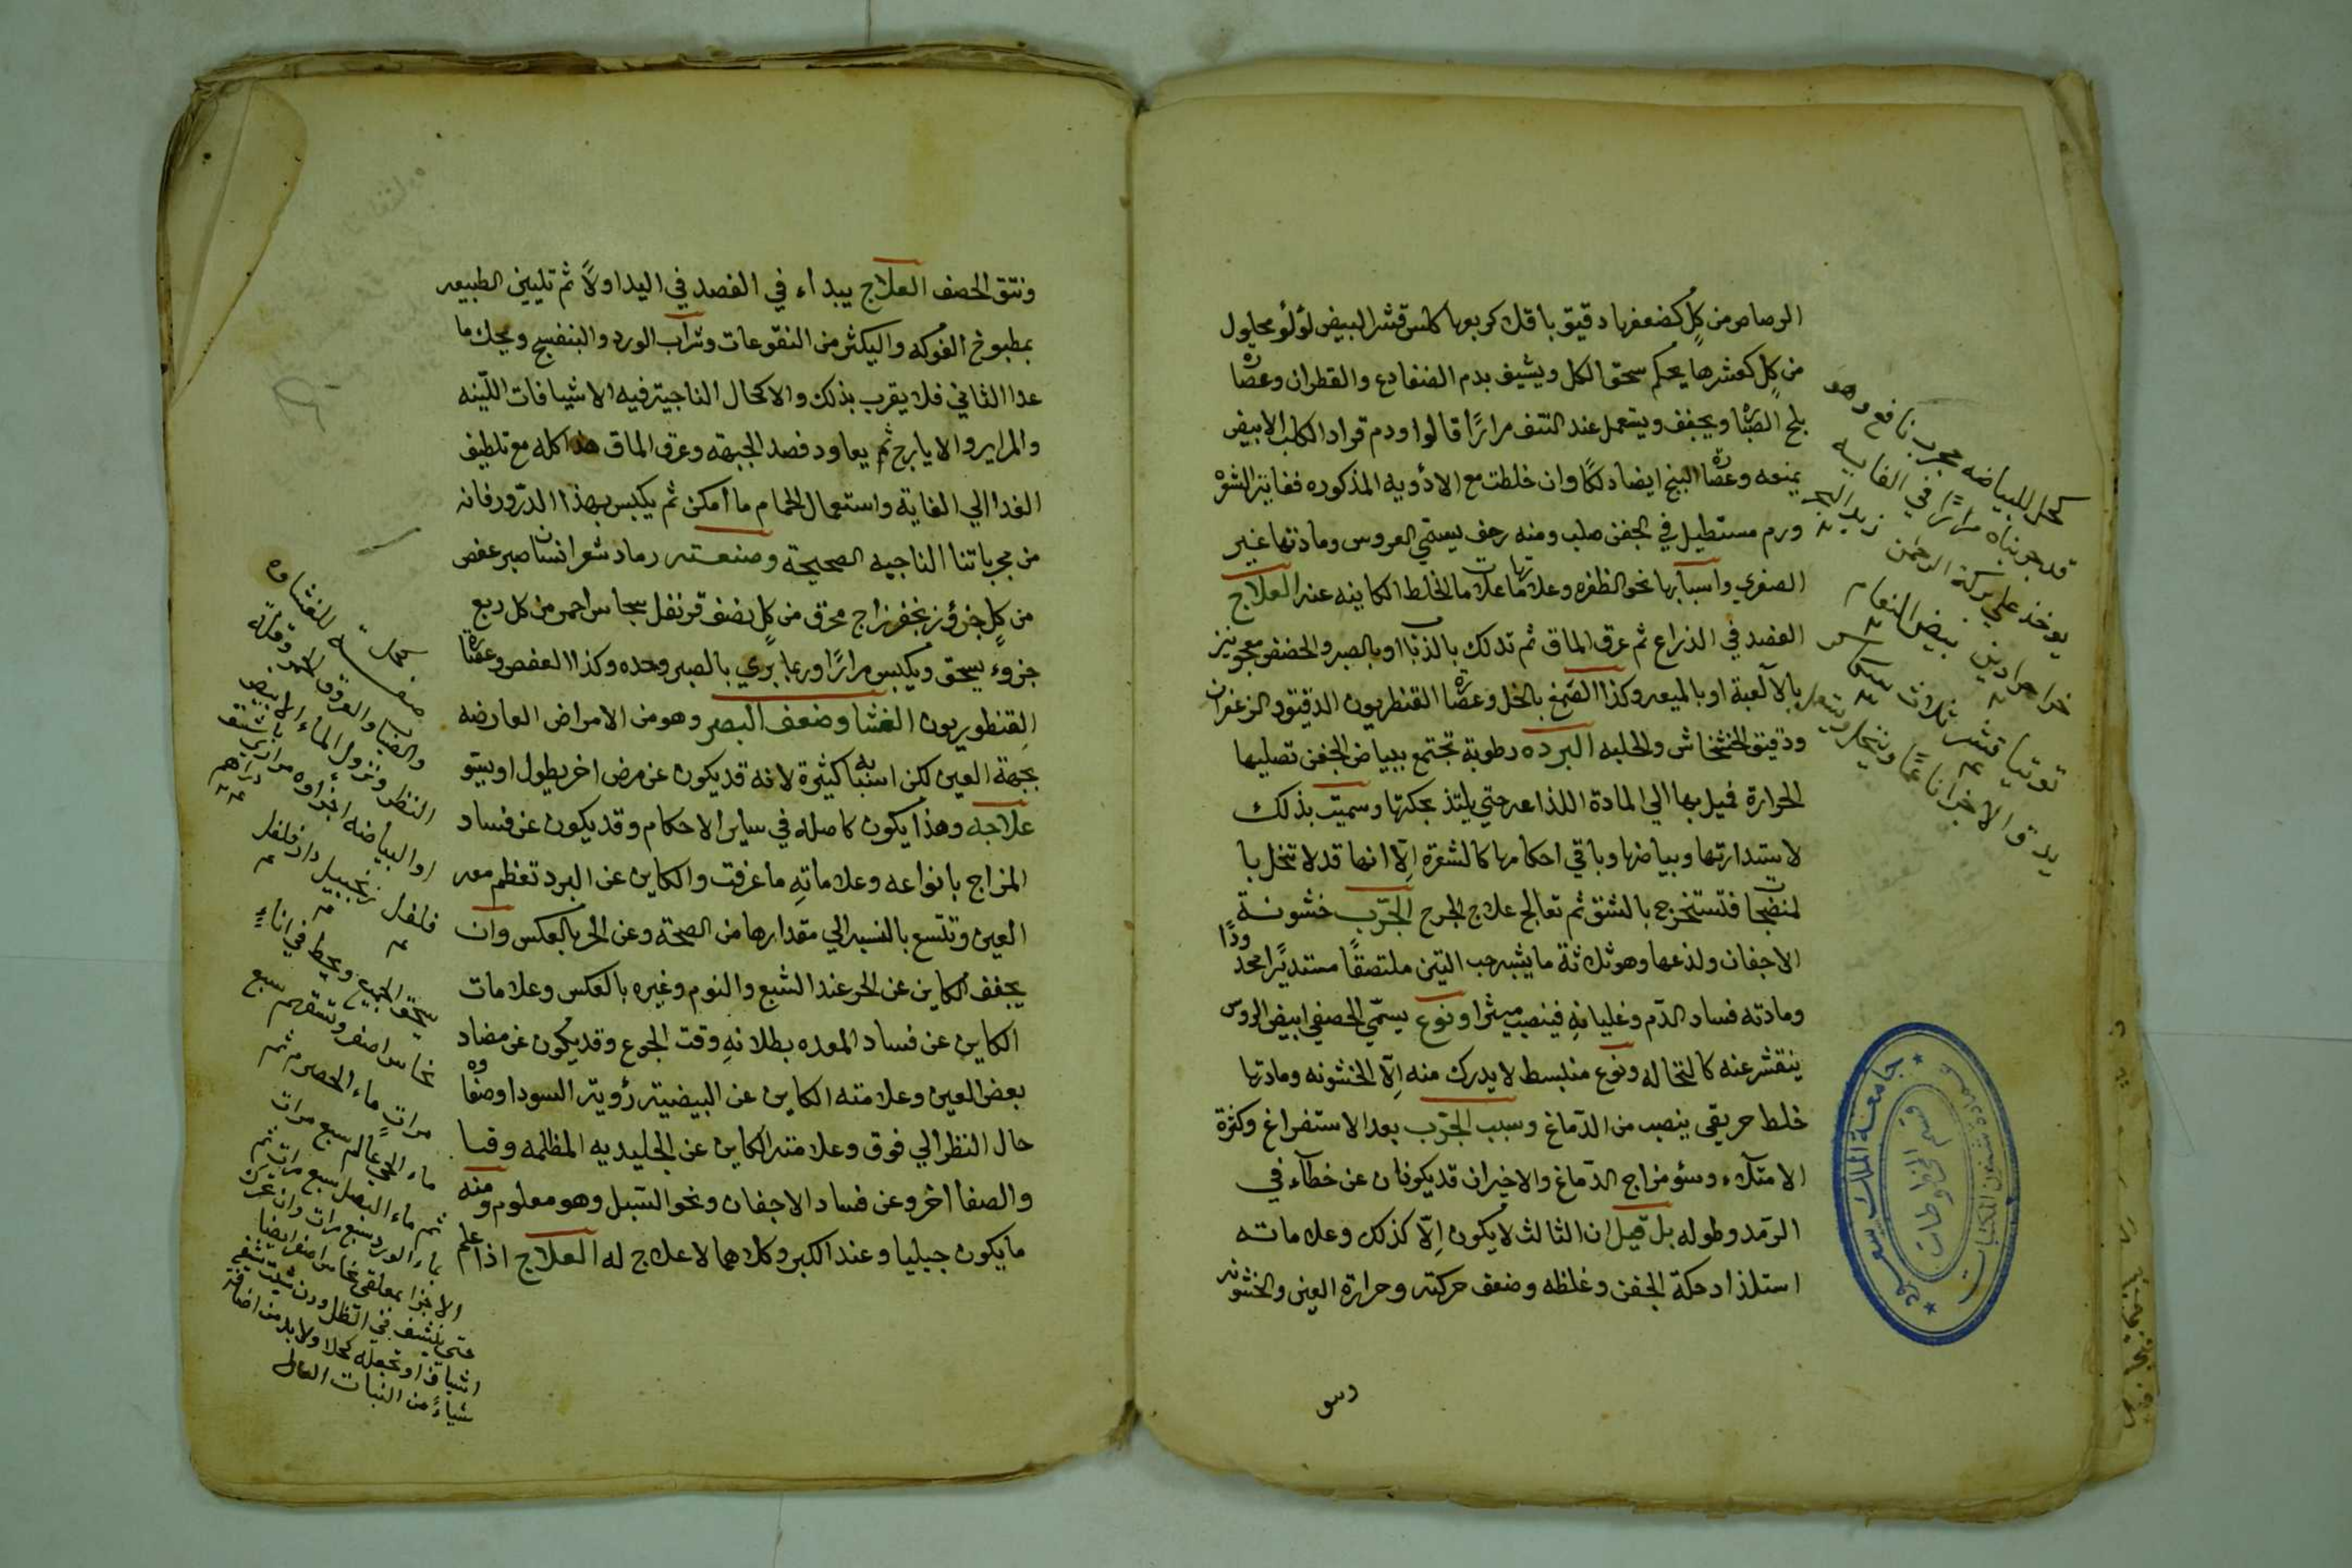 الرصاص من كل كضعفها دقيق باقلا كربعها كلس قشر البيض لؤلؤ محلول
من كل كعشرها يحكم سحق الكل ويشيف بدم الضفادع والقطران وعصارة
بلح الصبا ويجفف ويستعمل عند النتف مرارًا قالوا ودم قراد الكلب الابيض
يمنعه وعصارة البنج ايضا دلكًا وان خلطت مع الادويه المذكوره فغاية الشعره
ورم مستطيل في الجفن صلب ومنه رخف يسمي العروس ومادتها غير
الصفري واسبابها نحو الظفره وعلاماتها علامات الخلط الكاينه عنه العلاج
الفصد في الذراع ثم عرق الماق ثم تدلك بالذباب او بالصبر والحضض معجونين
بالالعبة او بالميعه وكذا الصمغ بالخل وعصارة القنطريون الدقيق والزعفران
ودقيق الخشخاش والحلبه البرده رطوبة تجتمع ببياض الجفن تصليها
الحرارة فيل بها الي المادة اللذاعه حتي يلتذ بحكتها وسميت بذلك
لاستدارتها وبياضها وباقي احكامها كالشعرة إلّا انها قد لا تنحل با
لمنضجات فتستخرج بالشق ثم تعالج علاج الجرح الجرب خشونة
الاجفان ولذعها وهو ثلاثة ما يشبه حب التين ملتصقًا مستديرًا محدودًا
ومادته فساد الدّم وغليانهِ فينصب ميثرا ونوع يسمّي الحصفي ابيض الروس
ينقشر عنه كالنخاله ونوع منبسط لا يدرك منه إلّا الخشونه ومادتها
خلط حريقي ينصب من الدّماغ وسبب الجرب بعد الاستفراغ وكثرة
الامتلاء وسؤ مزاج الدّماغ والاخيران قد يكونان عن خطآء في
الرّمد وطوله بل قيل ان الثالث لا يكون إلّا كذلك وعلاماته
استلذاد حكة الجفن وغلظه وضعف حركته وحرارة العين والخشونه
كحل للبياضه مجرب نافع وهو
قد جربناه مرارًا في الغايه
يوخذ علي بركة الرحمن زبد البحر
خرا جرادين بيض النعام
توتيا قشر ثلاث سكر
يدق الاجزا ناعمًا وينخل ويستعمل
جامعة الملك سعود
عمادة شئون المكتبات
قسم المخطوطات
ونتق الحصف العلاج يبداء في الفصد في اليد اولًا ثم تليين الطبيعه
بمطبوخ الفوكه واليكثر من النقوعات وشراب الورد والبنفسج ويحك ما
عدا الثاني فلا يقرب بذلك والاكحال الناجية فيه الاشيافات اللّينه
والمراير والايارج ثم يعاود فصد الجبهة وعرق الماق هذا كله مع تلطيف
الغدا الي الغاية واستعمال الحمام ما أمكن ثم يكبس بهذا الذّرور فانه
من مجرباتنا الناجيه الصحيحة وصنعته رماد شعر انسان صبر عفص
من كلٍ جزؤ زنجفر زاج محرق من كلٍ نصف قرنفل نحاس احمر من كل ربع
جزوء يسحق ويكبس مرارًا وربما بري بالصبر وحده وكذا العفص وعصارة
القنطوريون الغشا وضعف البصر وهو من الامراض العارضه
بجهة العين لكن اسبابه كثيرة لانه قد يكون عن مرض اخر يطول او يسؤ
علاجه وهذا يكون كاصله في ساير الاحكام وقد يكون عن فساد
المزاج بانواعه وعلاماتهِ ما عرفت والكاين عن البرد تعظم معه
العين وتتسع بالنسبه الي مقدارها من الصحة وعن الحر بالعكس وان
يجفف الكاين عن الحر عند الشبع والنوم وغيره بالعكس وعلامات
الكاين عن فساد المعده بطلانهِ وقت الجوع وقد يكون عن مضاد
بعض العين وعلامته الكاين عن البيضية رؤية السودا وصفاوه
حال النظر الي فوق وعلامته الكاين عن الجليديه المظلمه وقسا
والصفا اخر وعن فساد الاجفان ونحو السّبل وهو معلوم ومنه
ما يكون جبليا وعند الكبر وكلاهما لا علاج له العلاج اذا علم
للغشاوه
والضبا والعروق الحمر وقلة
النظر ونزول الماء الابيض
او البياضه اجزاوه
فلفل زنجبيل دار فلفل
يسحق الجميع ويحط في اناءٍ
نحاس اصفر وتسقى سبع
مراتٍ ماء الحصرم ثم
ماء الحي عالم سبع مرات
ثم ماء البصل سبع مرات ثم
بماء الورد سبع مرات وان تحرك
الاجزا بمعلقة نحاس اصفر ايضا
حتى ينشف في الظل
اشياف او تجعله كحلا ولا بد من اضافة
شياءً من النبات العال